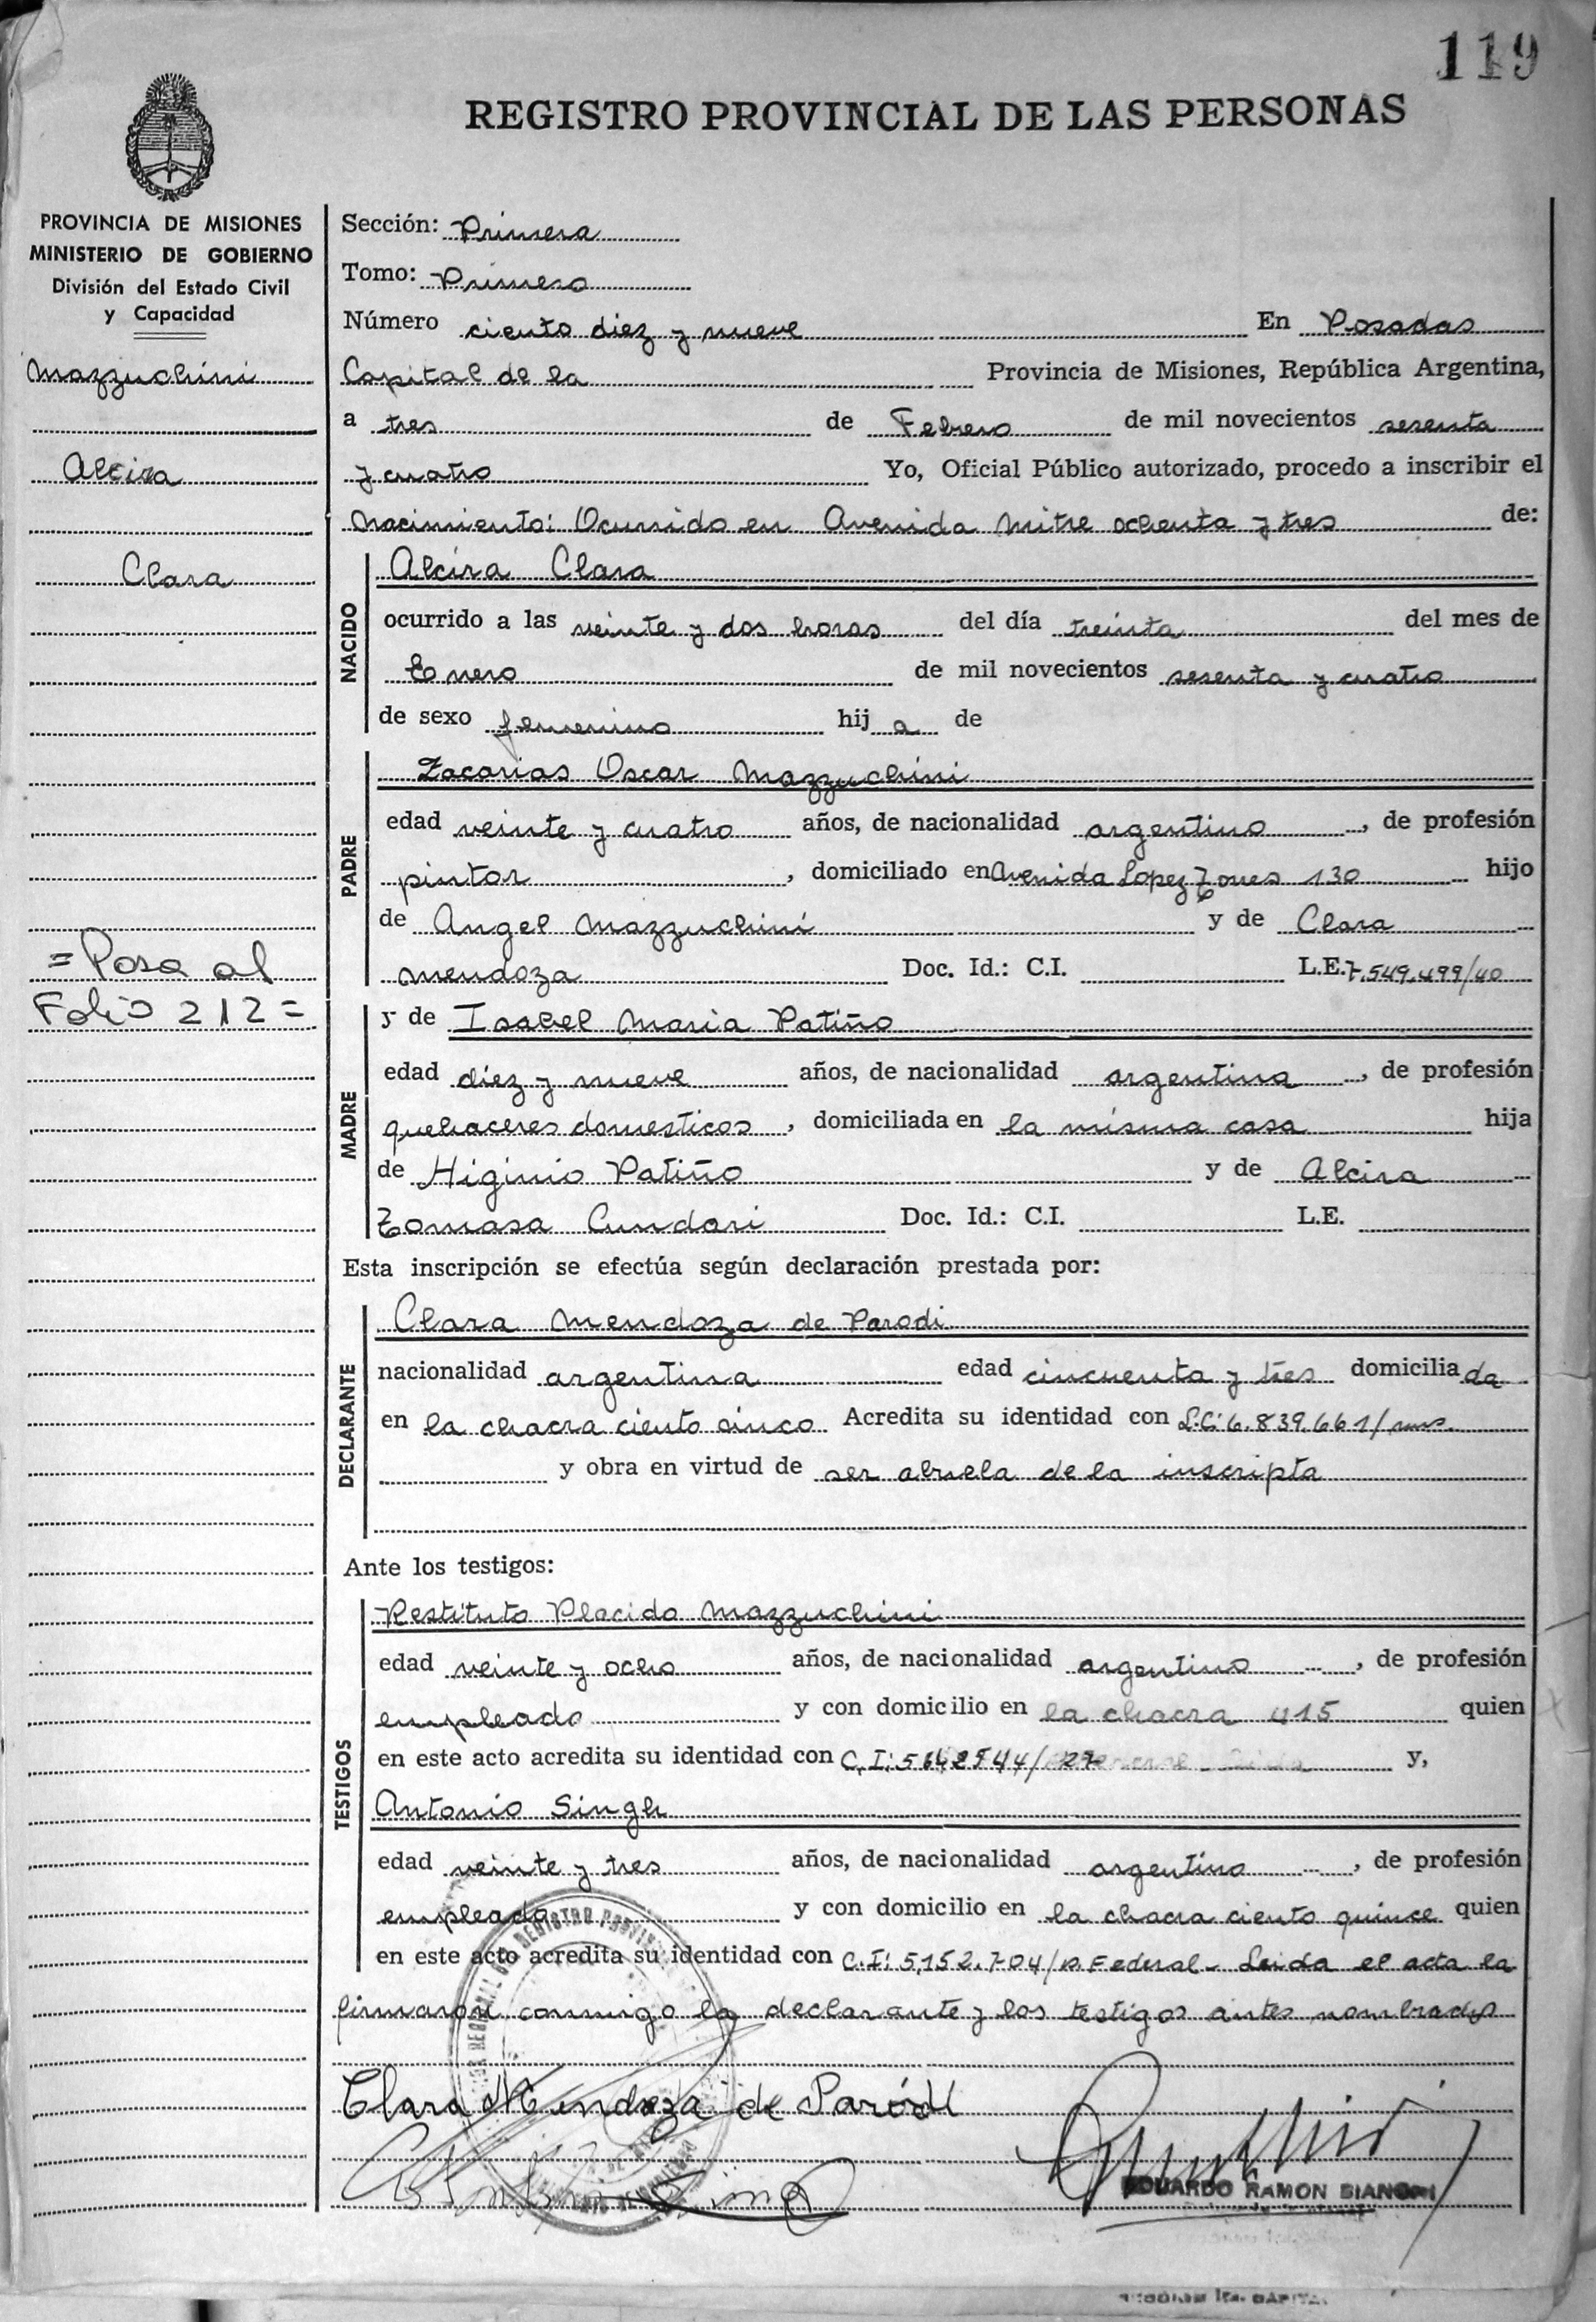 119
REGISTRO PROVINCIAL DE LAS PERSONAS
PROVINCIA DE MISIONES
MINISTERIO DE GOBIERNO
División del Estado Civil
y Capacidad
Mazzuchini
Alcira
Clara
=Pasa al
Folio 212=
Sección: Primera
Tomo: Primero
Número ciento diez y nueve En Posadas
Capital de la Provincia de Misiones, República Argentina,
a tres de Febrero de mil novecientos sesenta
y cuatro Yo, Oficial Público autorizado, procedo a inscribir el
Nacimiento: Ocurrido en Avenida Mitre ochenta y tres de:
NACIDO
Alcira Clara
ocurrido a las veinte y dos horas del día treinta del mes de
Enero de mil novecientos sesenta y cuatro
de sexo femenino hij a de
PADRE
Zacarias Oscar Mazzuchini
edad veinte y cuatro años, de nacionalidad argentino, de profesión
pintor, domiciliado en Avenida Lopez Torres 130 hijo
de Angel Mazzuchini y de Clara
Mendoza Doc. Id.: C.I. L.E. 7.549.499/40
MADRE
y de Isabel Maria Patiño
edad diez y nueve años, de nacionalidad argentina, de profesión
quehaceres domesticos, domiciliada en la misma casa hija
de Higinio Patiño y de Alcira
Tomasa Cundari Doc. Id.: C.I. L.E.
Esta inscripción se efectúa según declaración prestada por:
DECLARANTE
Clara Mendoza de Parodi
nacionalidad argentina edad cincuenta y tres domiciliada
en la chacra ciento cinco Acredita su identidad con L.C: 6.839.661/mns.
y obra en virtud de ser abuela de la inscripta
Ante los testigos:
TESTIGOS
Restituto Placido Mazzuchini
edad veinte y ocho años, de nacionalidad argentino, de profesión
empleado y con domicilio en la chacra 115 quien
en este acto acredita su identidad con C.I: y,
Antonio Singh
edad veinte y tres años, de nacionalidad argentino, de profesión
empleado y con domicilio en la chacra ciento quince quien
en este acto acredita su identidad con C.I: 5.152.704/P. Federal - Leida el acta la
firmaron conmigo la declarante y los testigos antes nombrados
Clara Mendoza de Parodi
EDUARDO RAMON